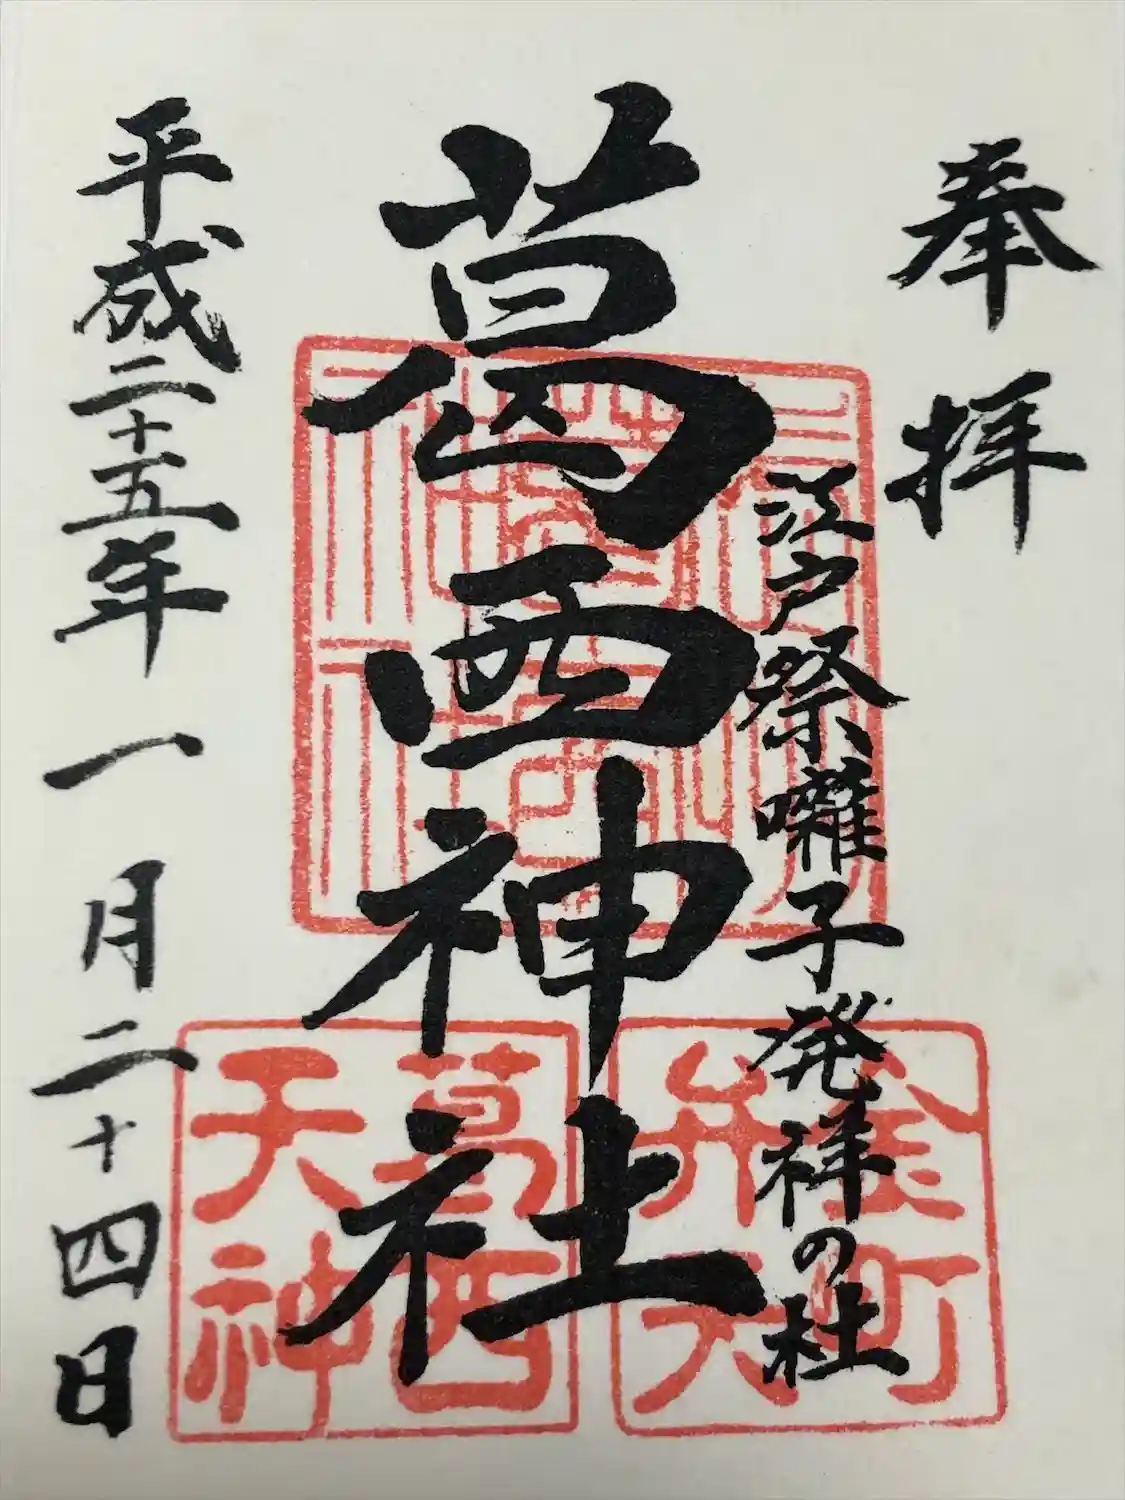 奉拝
江戸祭囃子発祥の杜
葛西神社
平成二十五年一月二十四日
金町
弁天
葛西
天神